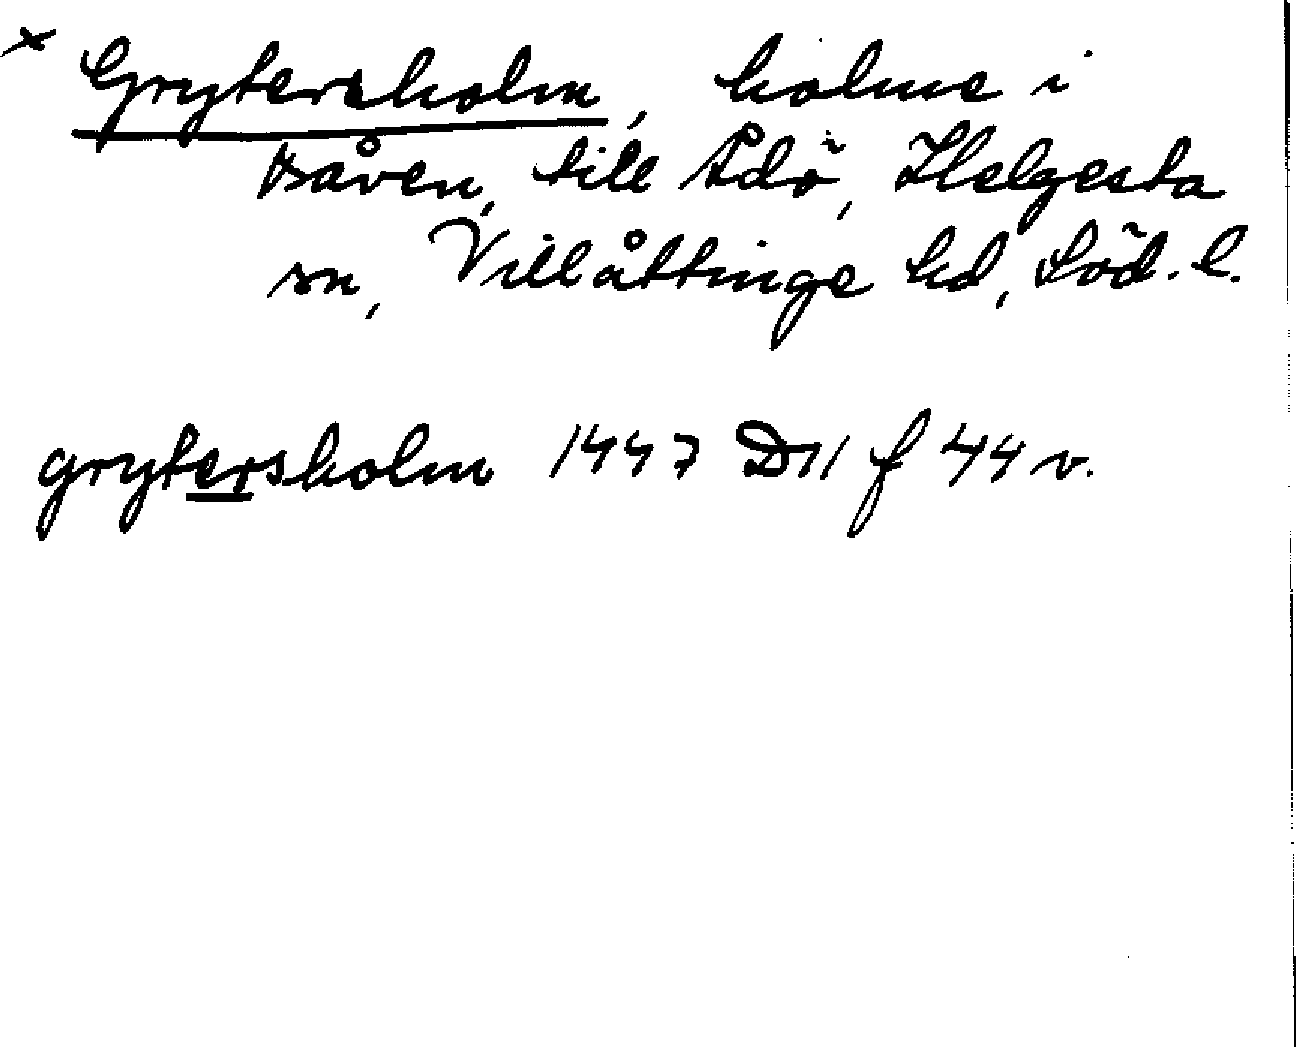 × Grytersholm, holme i
Båven, till Ådö, Helgesta
sn, Villåttinge hd, Söd. l.
grytersholm 1447 D11 f 44 v.